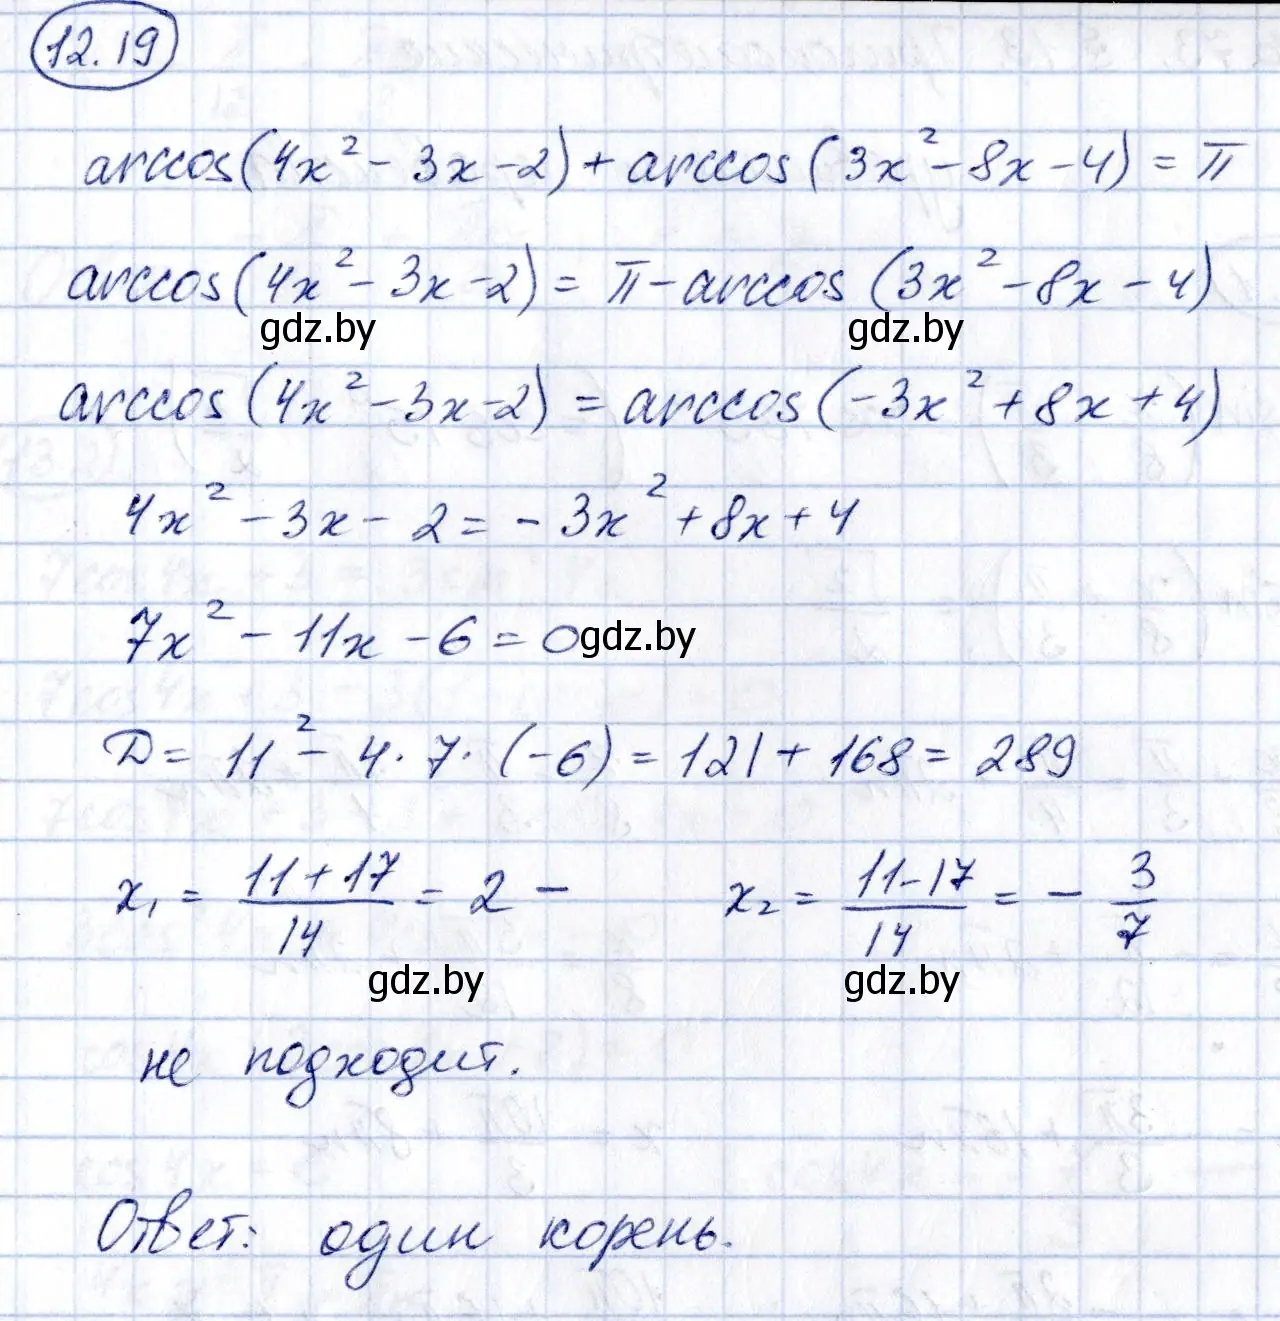 12.19
arccos(4x² - 3x - 2) + arccos(3x² - 8x - 4) = π
arccos(4x² - 3x - 2) = π - arccos(3x² - 8x - 4)
gdz.by gdz.by
arccos(4x² - 3x - 2) = arccos(-3x² + 8x + 4)
4x² - 3x - 2 = -3x² + 8x + 4
7x² - 11x - 6 = 0 gdz.by
D = 11² - 4 · 7 · (-6) = 121 + 168 = 289
x₁ = (11 + 17)/14 = 2 - x₂ = (11 - 17)/14 = -3/7
gdz.by gdz.by
не подходит.
Ответ: один корень.